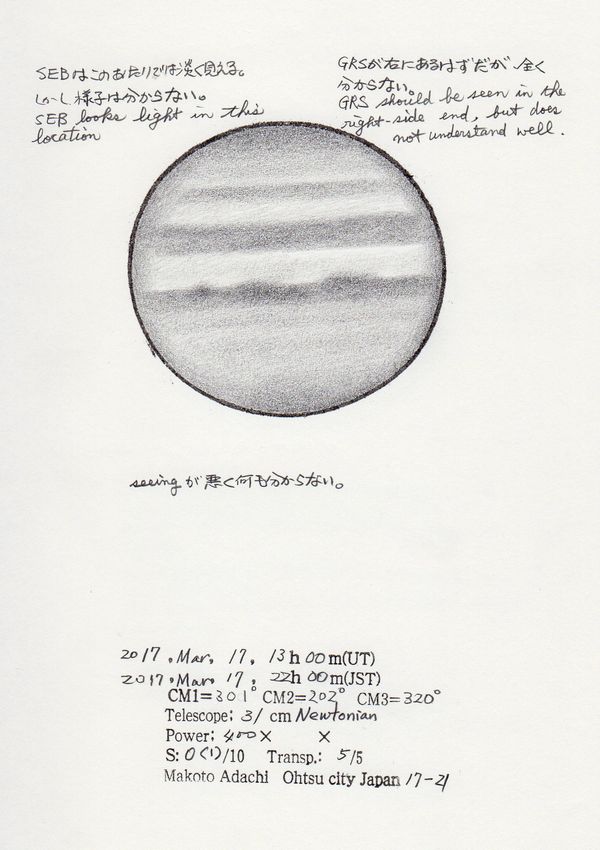 SEBはこのあたりでは淡く見える。
しかし様子は分からない。
SEB looks light in this
location
GRSが右にあるはずだが、全く
分からない。
GRS should be seen in the
right-side end, but does
not understand well.
seeingが悪く何も分からない。
2017.Mar, 17, 13h00m(UT)
2017.Mar, 17, 22h00m(JST)
CM1=301° CM2=202° CM3=320°
Telescope: 31 cm Newtonian
Power: 400× ×
S: 0(1)/10 Transp.: 5/5
Makoto Adachi Ohtsu city Japan 17-21